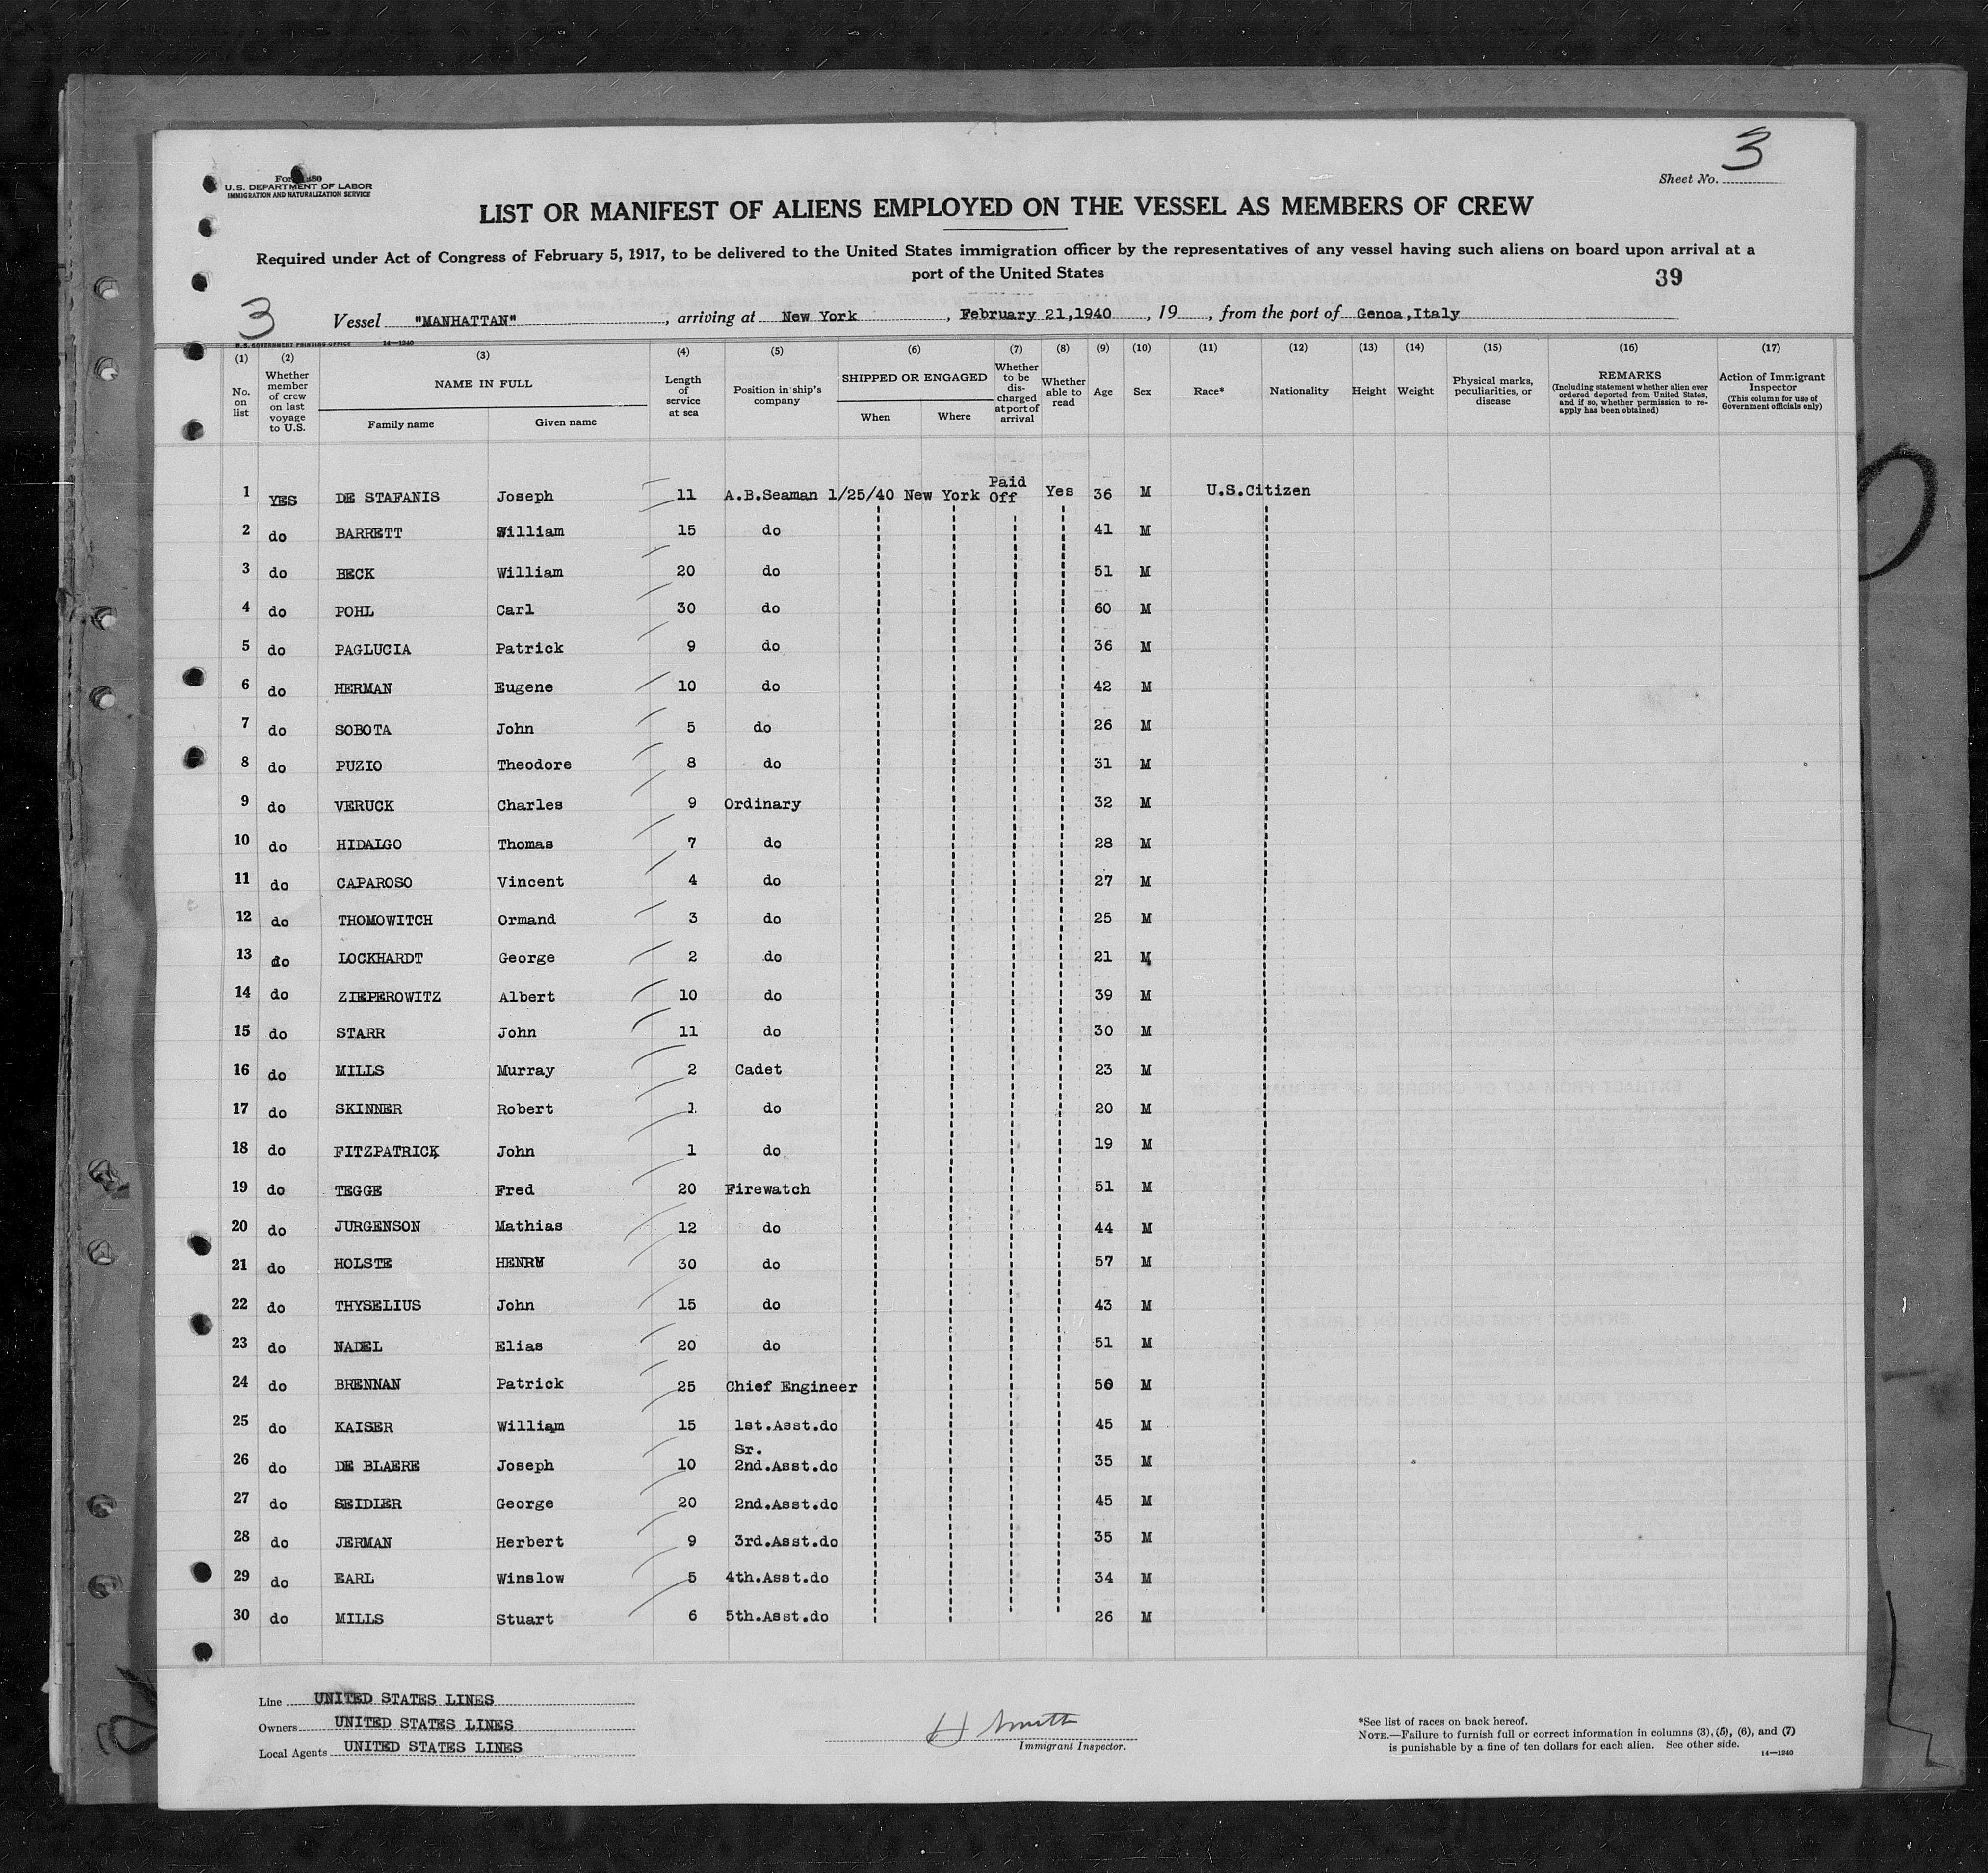 3
Sheet No.
Form 680
U.S. DEPARTMENT OF LABOR
IMMIGRATION AND NATURALIZATION SERVICE
LIST OR MANIFEST OF ALIENS EMPLOYED ON THE VESSEL AS MEMBERS OF CREW
Required under Act of Congress of February 5, 1917, to be delivered to the United States immigration officer by the representatives of any vessel having such aliens on board upon arrival at a
port of the United States
39
3 Vessel "MANHATTAN", arriving at New York, February 21,1940, 19, from the port of Genoa,Italy
U.S. GOVERNMENT PRINTING OFFICE 14—1240
(1) (2) (3) (4) (5) (6) (7) (8) (9) (10) (11) (12) (13) (14) (15) (16) (17)
No. on list
Whether member of crew on last voyage to U.S.
NAME IN FULL
Family name Given name
Length of service at sea
Position in ship's company
SHIPPED OR ENGAGED
When Where
Whether to be discharged at port of arrival
Whether able to read
Age Sex Race* Nationality Height Weight
Physical marks, peculiarities, or disease
REMARKS
(Including statement whether alien ever ordered deported from United States, and if so, whether permission to reapply has been obtained)
Action of Immigrant Inspector
(This column for use of Government officials only)
1 YES DE STAFANIS Joseph 11 A.B.Seaman 1/25/40 New York Paid Off Yes 36 M U.S.Citizen
2 do BARRETT William 15 do 41 M
3 do BECK William 20 do 51 M
4 do POHL Carl 30 do 60 M
5 do PAGLUCIA Patrick 9 do 36 M
6 do HERMAN Eugene 10 do 42 M
7 do SOBOTA John 5 do 26 M
8 do PUZIO Theodore 8 do 31 M
9 do VERUCK Charles 9 Ordinary 32 M
10 do HIDALGO Thomas 7 do 28 M
11 do CAPAROSO Vincent 4 do 27 M
12 do THOMOWITCH Ormand 3 do 25 M
13 do LOCKHARDT George 2 do 21 M
14 do ZIEPEROWITZ Albert 10 do 39 M
15 do STARR John 11 do 30 M
16 do MILLS Murray 2 Cadet 23 M
17 do SKINNER Robert 1 do 20 M
18 do FITZPATRICK John 1 do 19 M
19 do TEGGE Fred 20 Firewatch 51 M
20 do JURGENSON Mathias 12 do 44 M
21 do HOLSTE HENRY 30 do 57 M
22 do THYSELIUS John 15 do 43 M
23 do NADEL Elias 20 do 51 M
24 do BRENNAN Patrick 25 Chief Engineer 50 M
25 do KAISER William 15 1st.Asst.do 45 M
26 do DE BLAERE Joseph 10 Sr. 2nd.Asst.do 35 M
27 do SEIDLER George 20 2nd.Asst.do 45 M
28 do JERMAN Herbert 9 3rd.Asst.do 35 M
29 do EARL Winslow 5 4th.Asst.do 34 M
30 do MILLS Stuart 6 5th.Asst.do 26 M
Line UNITED STATES LINES
Owners UNITED STATES LINES
Local Agents UNITED STATES LINES
H Smith
Immigrant Inspector.
*See list of races on back hereof.
NOTE.—Failure to furnish full or correct information in columns (3), (5), (6), and (7)
is punishable by a fine of ten dollars for each alien. See other side.
14—1240